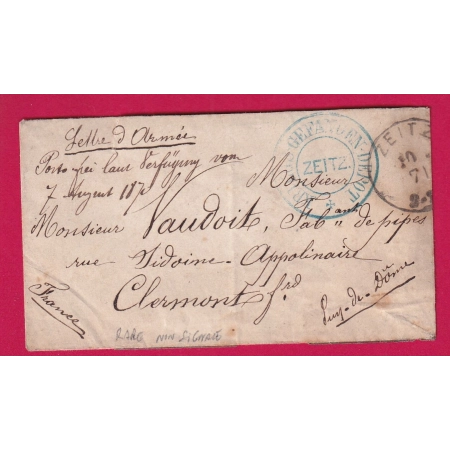 Lettre d'Armée
Porto frei laut Verfügung vom
7 August 1870
Monsieur
Monsieur Vaudoit, Fab^ant de pipes
rue Sidoine-Appolinaire
Clermont f^rd
France
Puy-de-Dôme
GEFANGEN-DEPOT
ZEITZ
ZEITZ
10
71
RARE NON SIGNALÉ